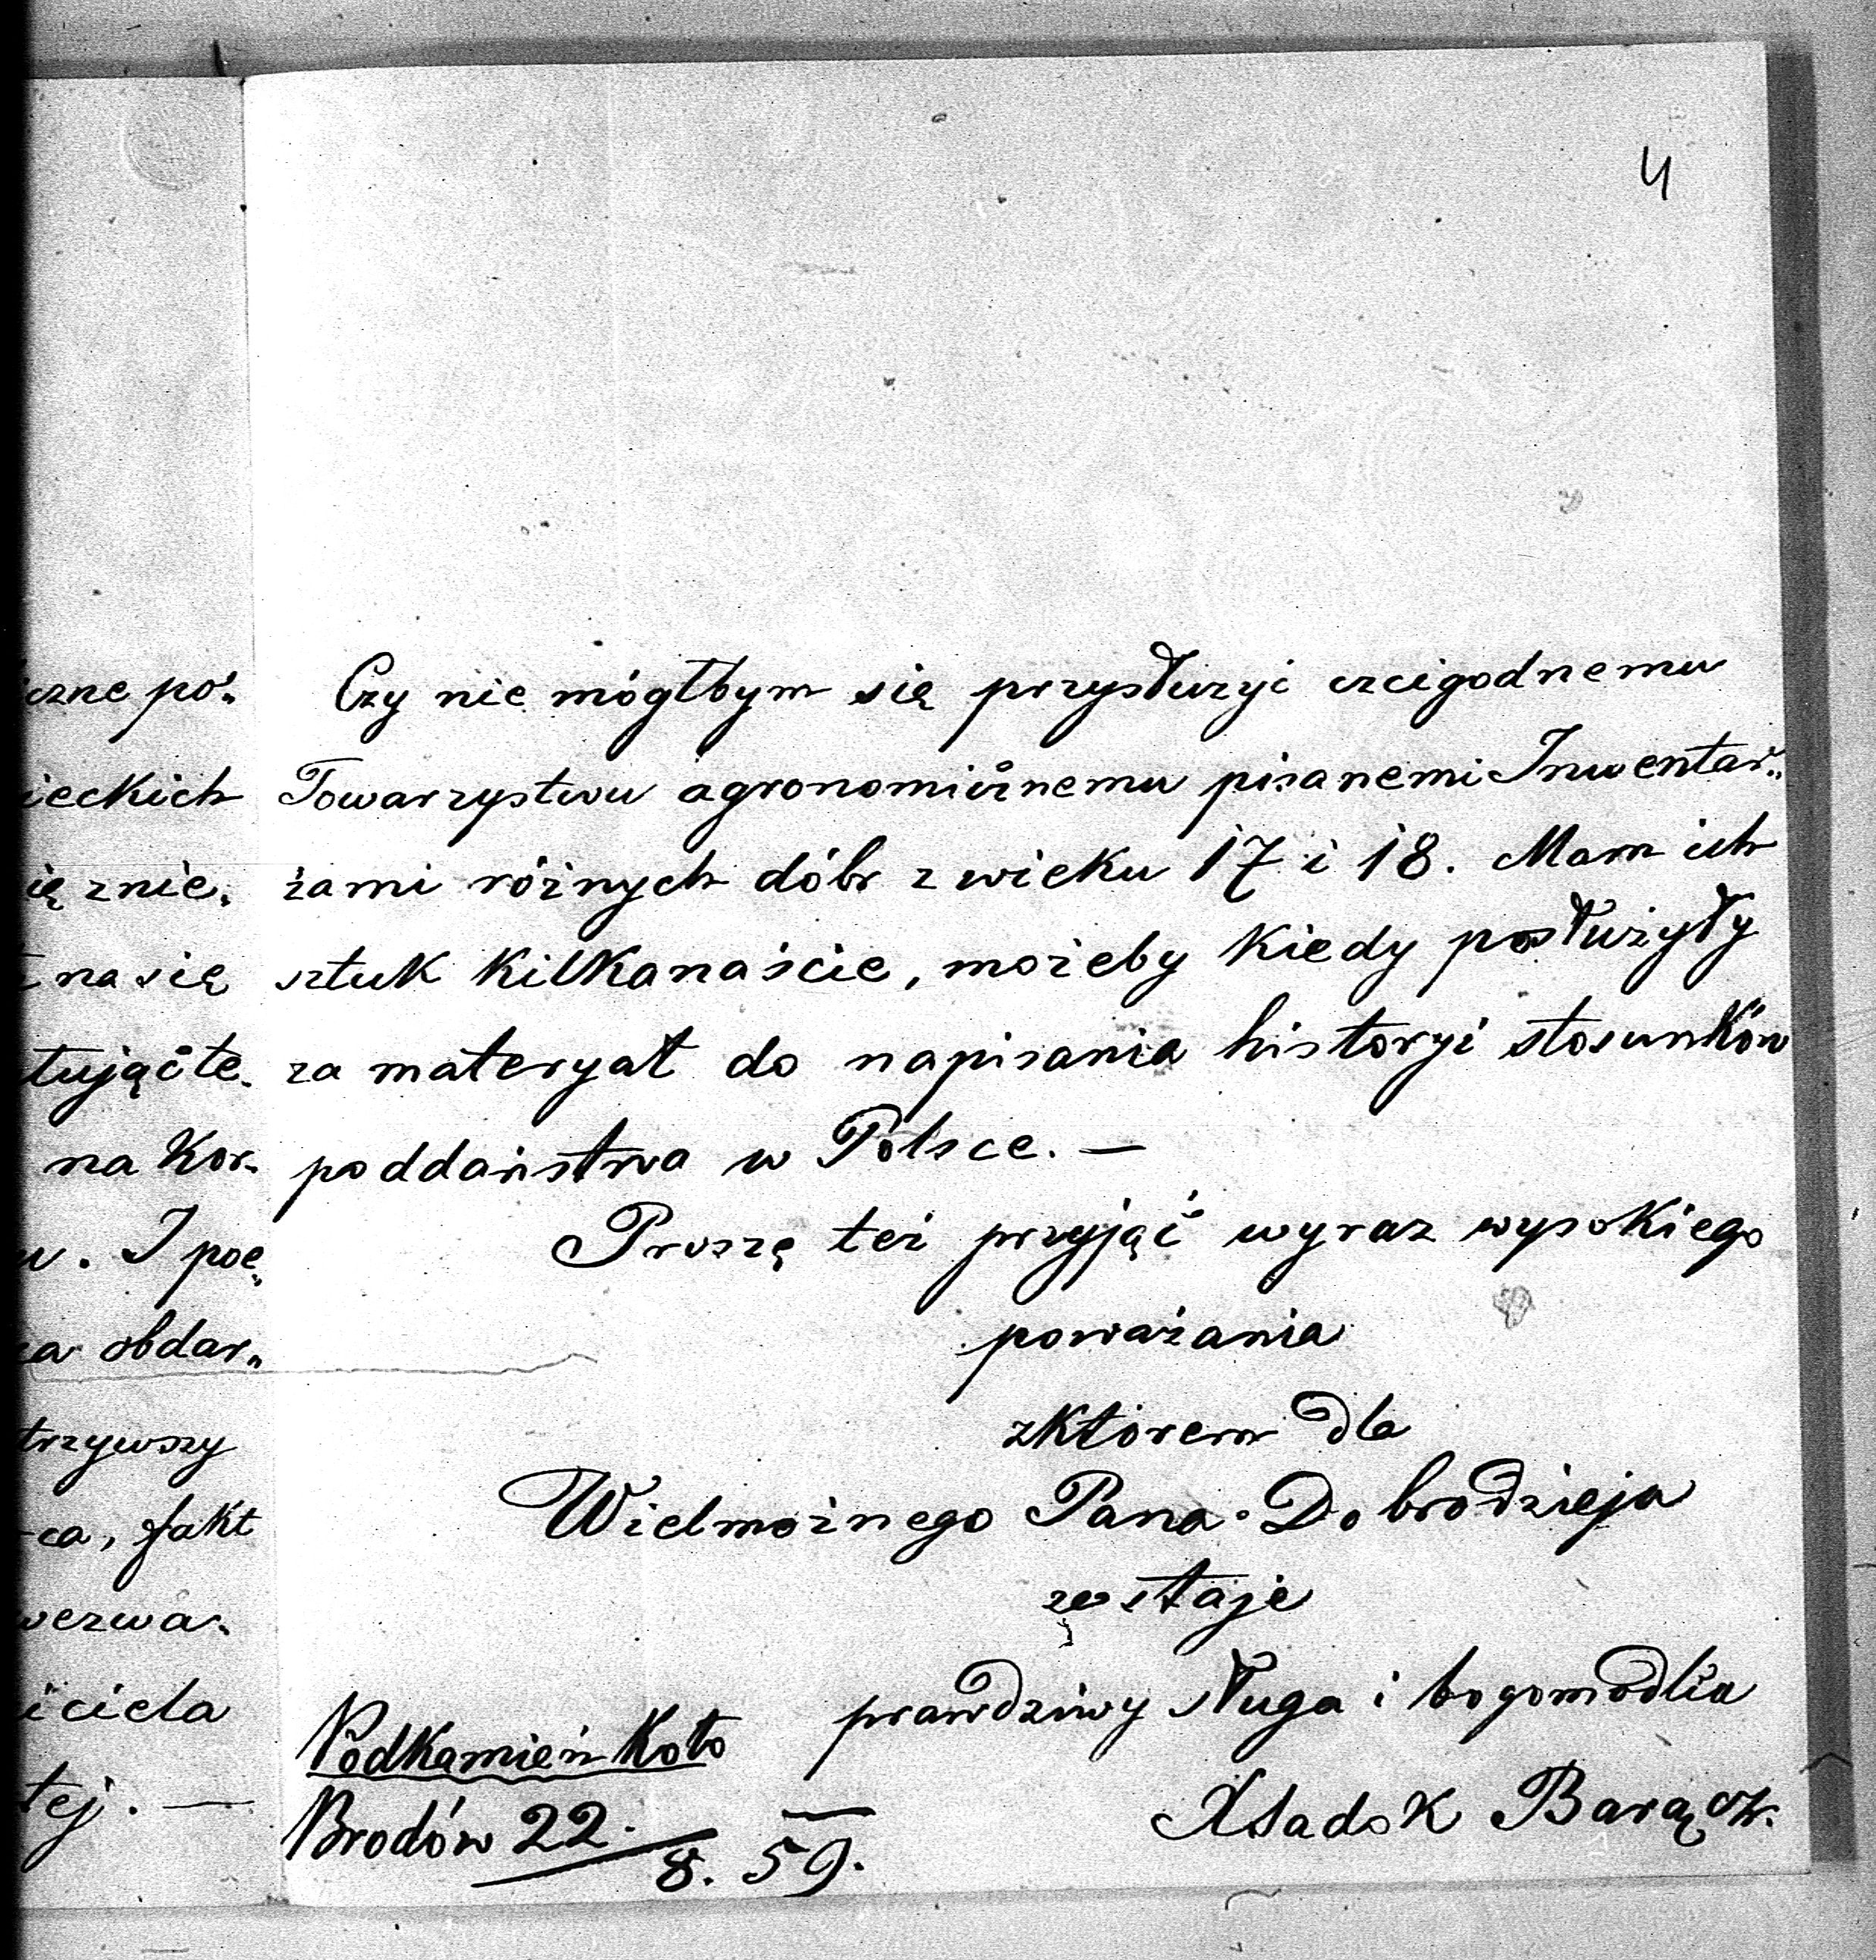 4
czne po„
ieckich
ię znie„
na się
tując te„
na kor„
w. I poe„
za obdar„
trzywszy
ca, fakt
wezwa„
iciela
tej. —
Czy nie mógłbym się przysłużyć czcigodnemu
Towarzystwu agronomicznemu pisanemi Inwentar„
żami różnych dóbr z wieku 17 i 18. Mam ich
sztuk kilkanaście, możeby kiedy posłużyły
za materyał do napisania historyi stosunków
poddaństwa w Polsce. —
Proszę też przyjąć wyraz wysokiego
poważania
z którem dla
Wielmożnego Pana Dobrodzieja
zostaję
prawdziwy sługa i bogomodlca
XSadok Barącz.
Podkamień koło
Brodów 22./8. 59.